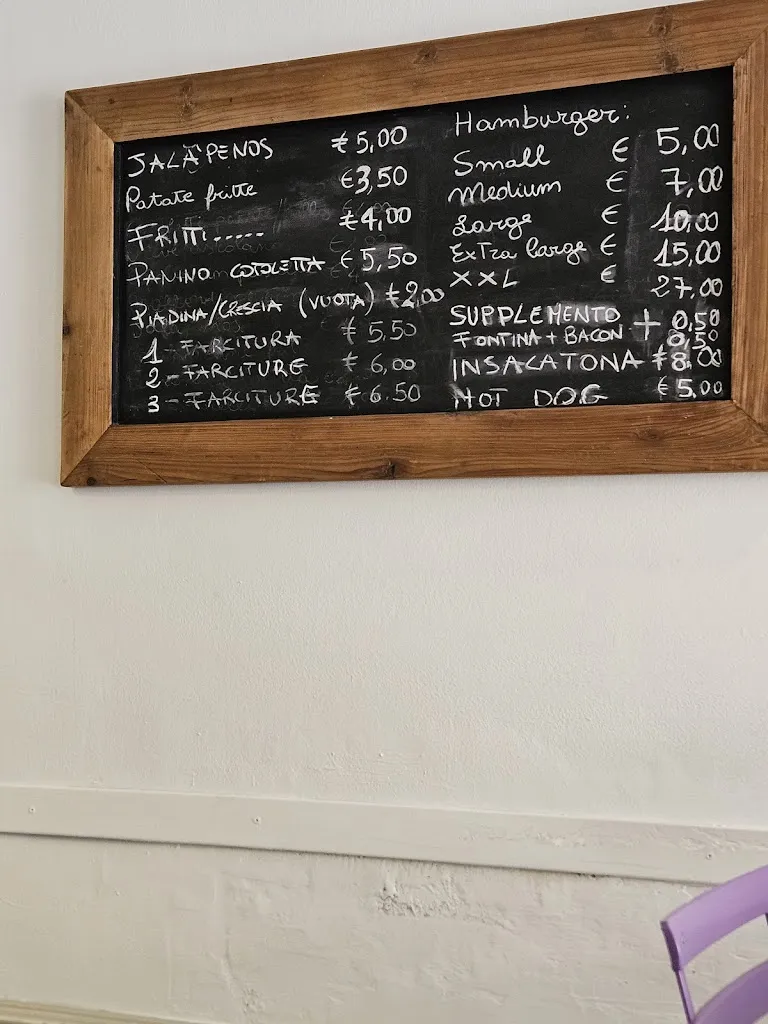 JALAPENOS € 5,00
Patate fritte €3,50
FRITTI..... €4,00
PANINO COTOLETTA € 5,50
PIADINA/CRESCIA (VUOTA) €2,00
1 - FARCITURA € 5.50
2 - FARCITURE € 6,00
3 - FARCITURE € 6.50
Hamburger:
Small € 5,00
Medium € 7,00
Large € 10,00
ExTra large € 15,00
XXL € 27,00
SUPPLEMENTO + 0,50
FONTINA + BACON 0,50
INSALATONA €8,00
HOT DOG € 5,00